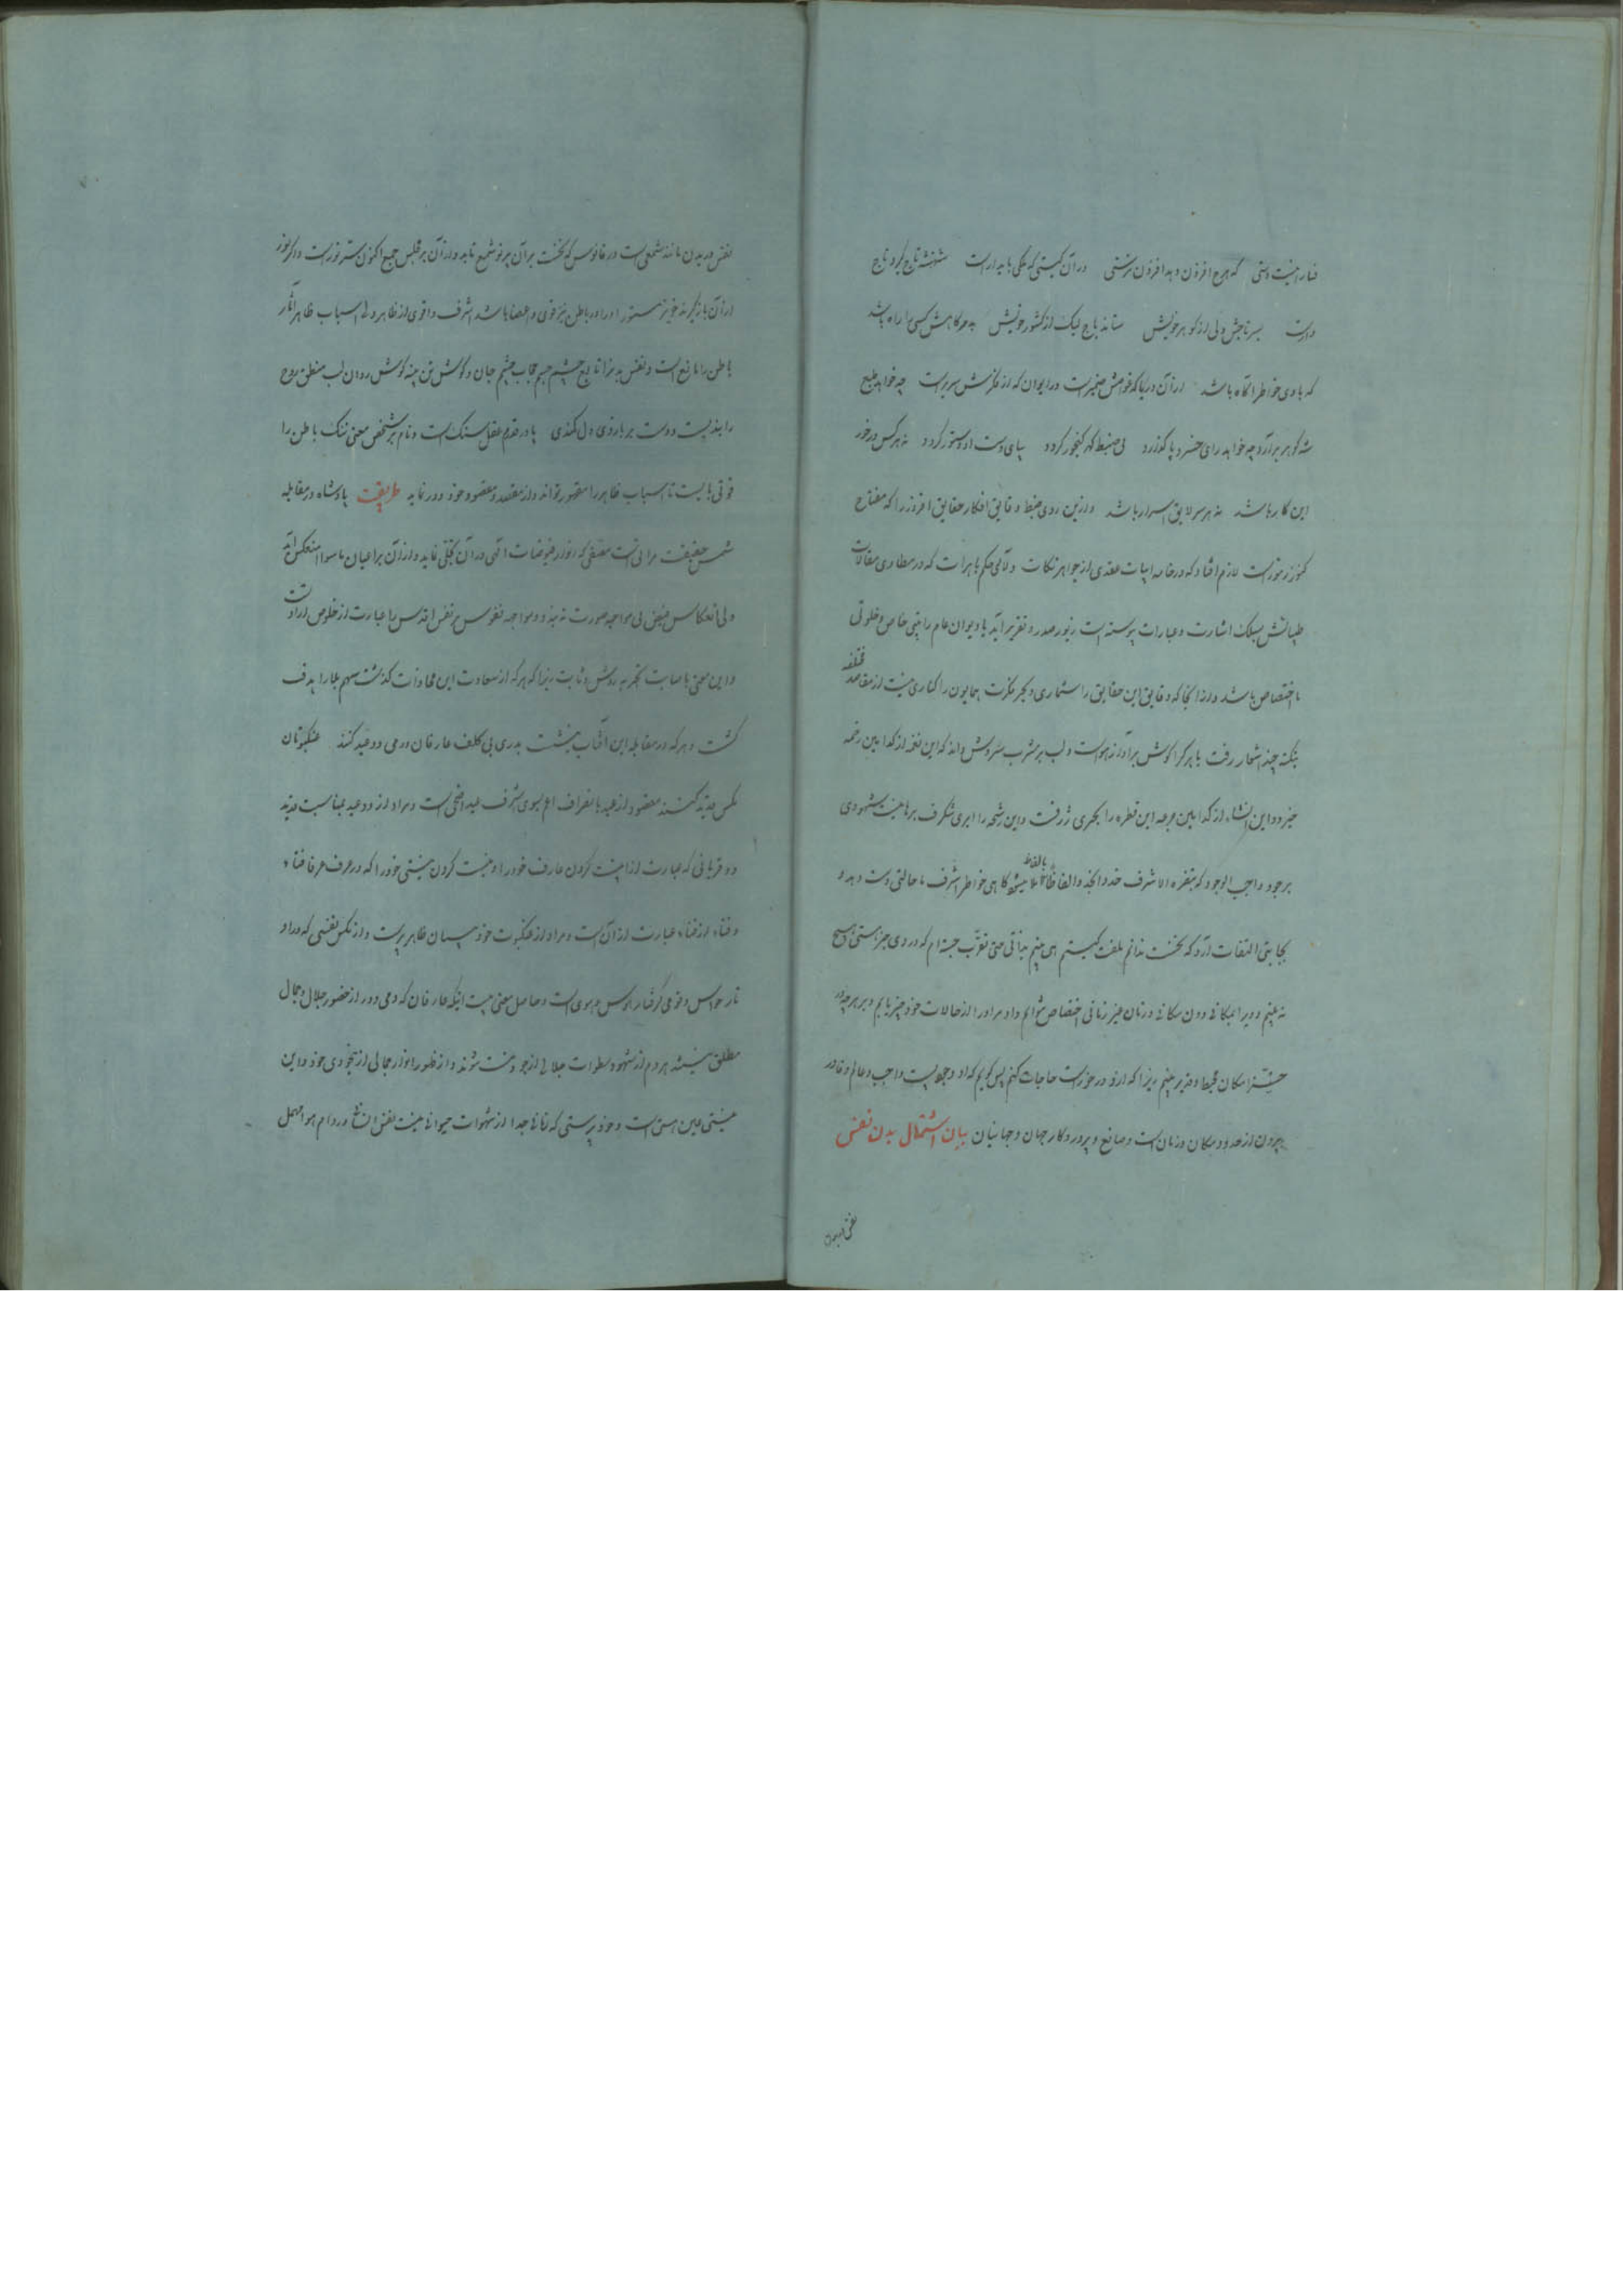 که هرچ افزون دهد افزون پرستی در آن گیتی که ملکی پایدار است شهنشه تاج گیرد تاج
دار است بسر تاجش ولی از گوهر خویش ستاند باج لیک از کشور خویش کسی را راه باشد
که با وی خواطر آگاه باشد از آن دریا که غورش ضمیر است در ایوان که از مغزش سریر است چه خواهد طبع
شه گوهر برآرد چه خواهد رای خسرو پا گذارد پی ضبط گهر گنجور گردد بپای دست او دستور گردد نه هر کس در خور
این کار باشد نه هر سر لایق اسرار باشد و ازین روی ضبط دقایق افکار حقایق افروز را که مفتاح
کنوز رموز است لازم افتاد که در خاصه ابیات عقدی از جواهر نکات و لآلی حکم باهرات که در مطاوی مقالات
بمسلک اشارت و عبارات پیوسته است زیور صدر و تقریر آید با دیوان عام را بنی خاص و خلوتی
با اختصاص باشد و از آنجا که دقایق این حقایق را شماری و بحر مکرمت همایون را کناری نیست از مقاصد مختلفه
بنکته چند اشعار رفت تا هر که را گوش بر آواز هوست و لب بر مشرب سروش داند که این نغمه از کدامین زخمه
خیزد و این انشاء از کدامین جرعه این قطره را بحری ژرفست و این رشحه را ابری شگرف برهانیست شهودی
بر جود واجب الوجود که بتقرّه الاشرف خاطر اشرف ما حالتی دست دهد و
بجایی التفات آرد که نخست ندانم ملفت کیستم همی بینم بذاتی تقرّب جسته‌ام که در وی جز هستی هیچ
نه بینم و ویرا بمکانی دون مکانی و زمان غیر زمانی اختصاص نتوانم داد مر او را از حالات خود خبر یابم و بر هر چه در
حیّز امکان محیط و مدبر بینم زیرا که از او درخواست حاجات کنم پس گویم که او وجودیست واجب و عالم و قادر
بیرون از حدود مکان و زمان است و صانع و پروردگار جهان و جهانیان بیان اشتمال بدن نفس
نفس در بدن مانند شمعی است در فانوس که نخست بر آن پرتو شمع تابد و از آن بر مجلس جمع اکنون ستر نور است و اگر نور
از آن باز گیرند خود نیز مستور او را در باطن نیز قوی و اعضا باشد اشرف و اقوی از ظاهر ولی اسباب ظاهر آثار
باطن را مانع است و نفس به منزلتا مانع چشم جسم حجاب چشم جان و گوش تن پنبه گوش روان لب منطق روح
را بندیست دست بر بازوی دل کمندی پا در قدم عقل سنگ است و نام بر شخص معنی ننگ باطن را
قوتی بایست تا اسباب ظاهر را مقهور تواند و از مقصد و مقصود خود دور نماید طریقت پادشاه در مقابله
شمس حقیقت مرآتیست مصفی که انوار فیوضات الهی در آن تجلی نماید و از آن بر اعیان ماسوا منعکس آید
ولی انعکاس فیض بی مواجهه صورت نه بندد و مواجهه نفوس بر نفس اقدس را عبارت از خلوص ارادتست
و این معنی باصابت تجربه روشن و ثابت زیرا که هر که از سعادت این محاذات گذشت سهم بلا را هدف
گشت و هر که در مقابله این آفتاب نشست بدری بی کلف عارفان در می دو عید کنند عنکبوتان
مگس قدید کنند مقصود از عید بانصراف اعم بسوی اشرف عید اضحی است و مراد از دو عید بمناسبت قدید
دو قربانی که عبارت از نیست کردن عارف خود را و نیست کردن نیستی خود را که در عرف عرفا فناء
و فناء از فناء عبارت از آن است و مراد از عنکبوت خود پرستان ظاهر پرست و از مگس نفسی که در او
تار حواس و قومی گرفتار هوس و هوی است و حاصل معنی بیت اینکه عارفان که دمی دور از حضور جلال و جمال
مطلق نیستند هر دم از شهود سطوات جلالی از خود نیست شوند و از ظهور انوار جمالی از بیخودی خود و این
نیستی عین هستی است و خود پرستی که زمانی جدا از شهوات حیوانی نیست نفس انسانی در دام هوا مهمل